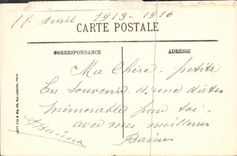 11 Avril 1913-1916
CARTE POSTALE
CORRESPONDANCE
ADRESSE
Ma Chère petite
En Souvenir d'une date
mémorable pour toi
avec mes meilleurs
Baisers